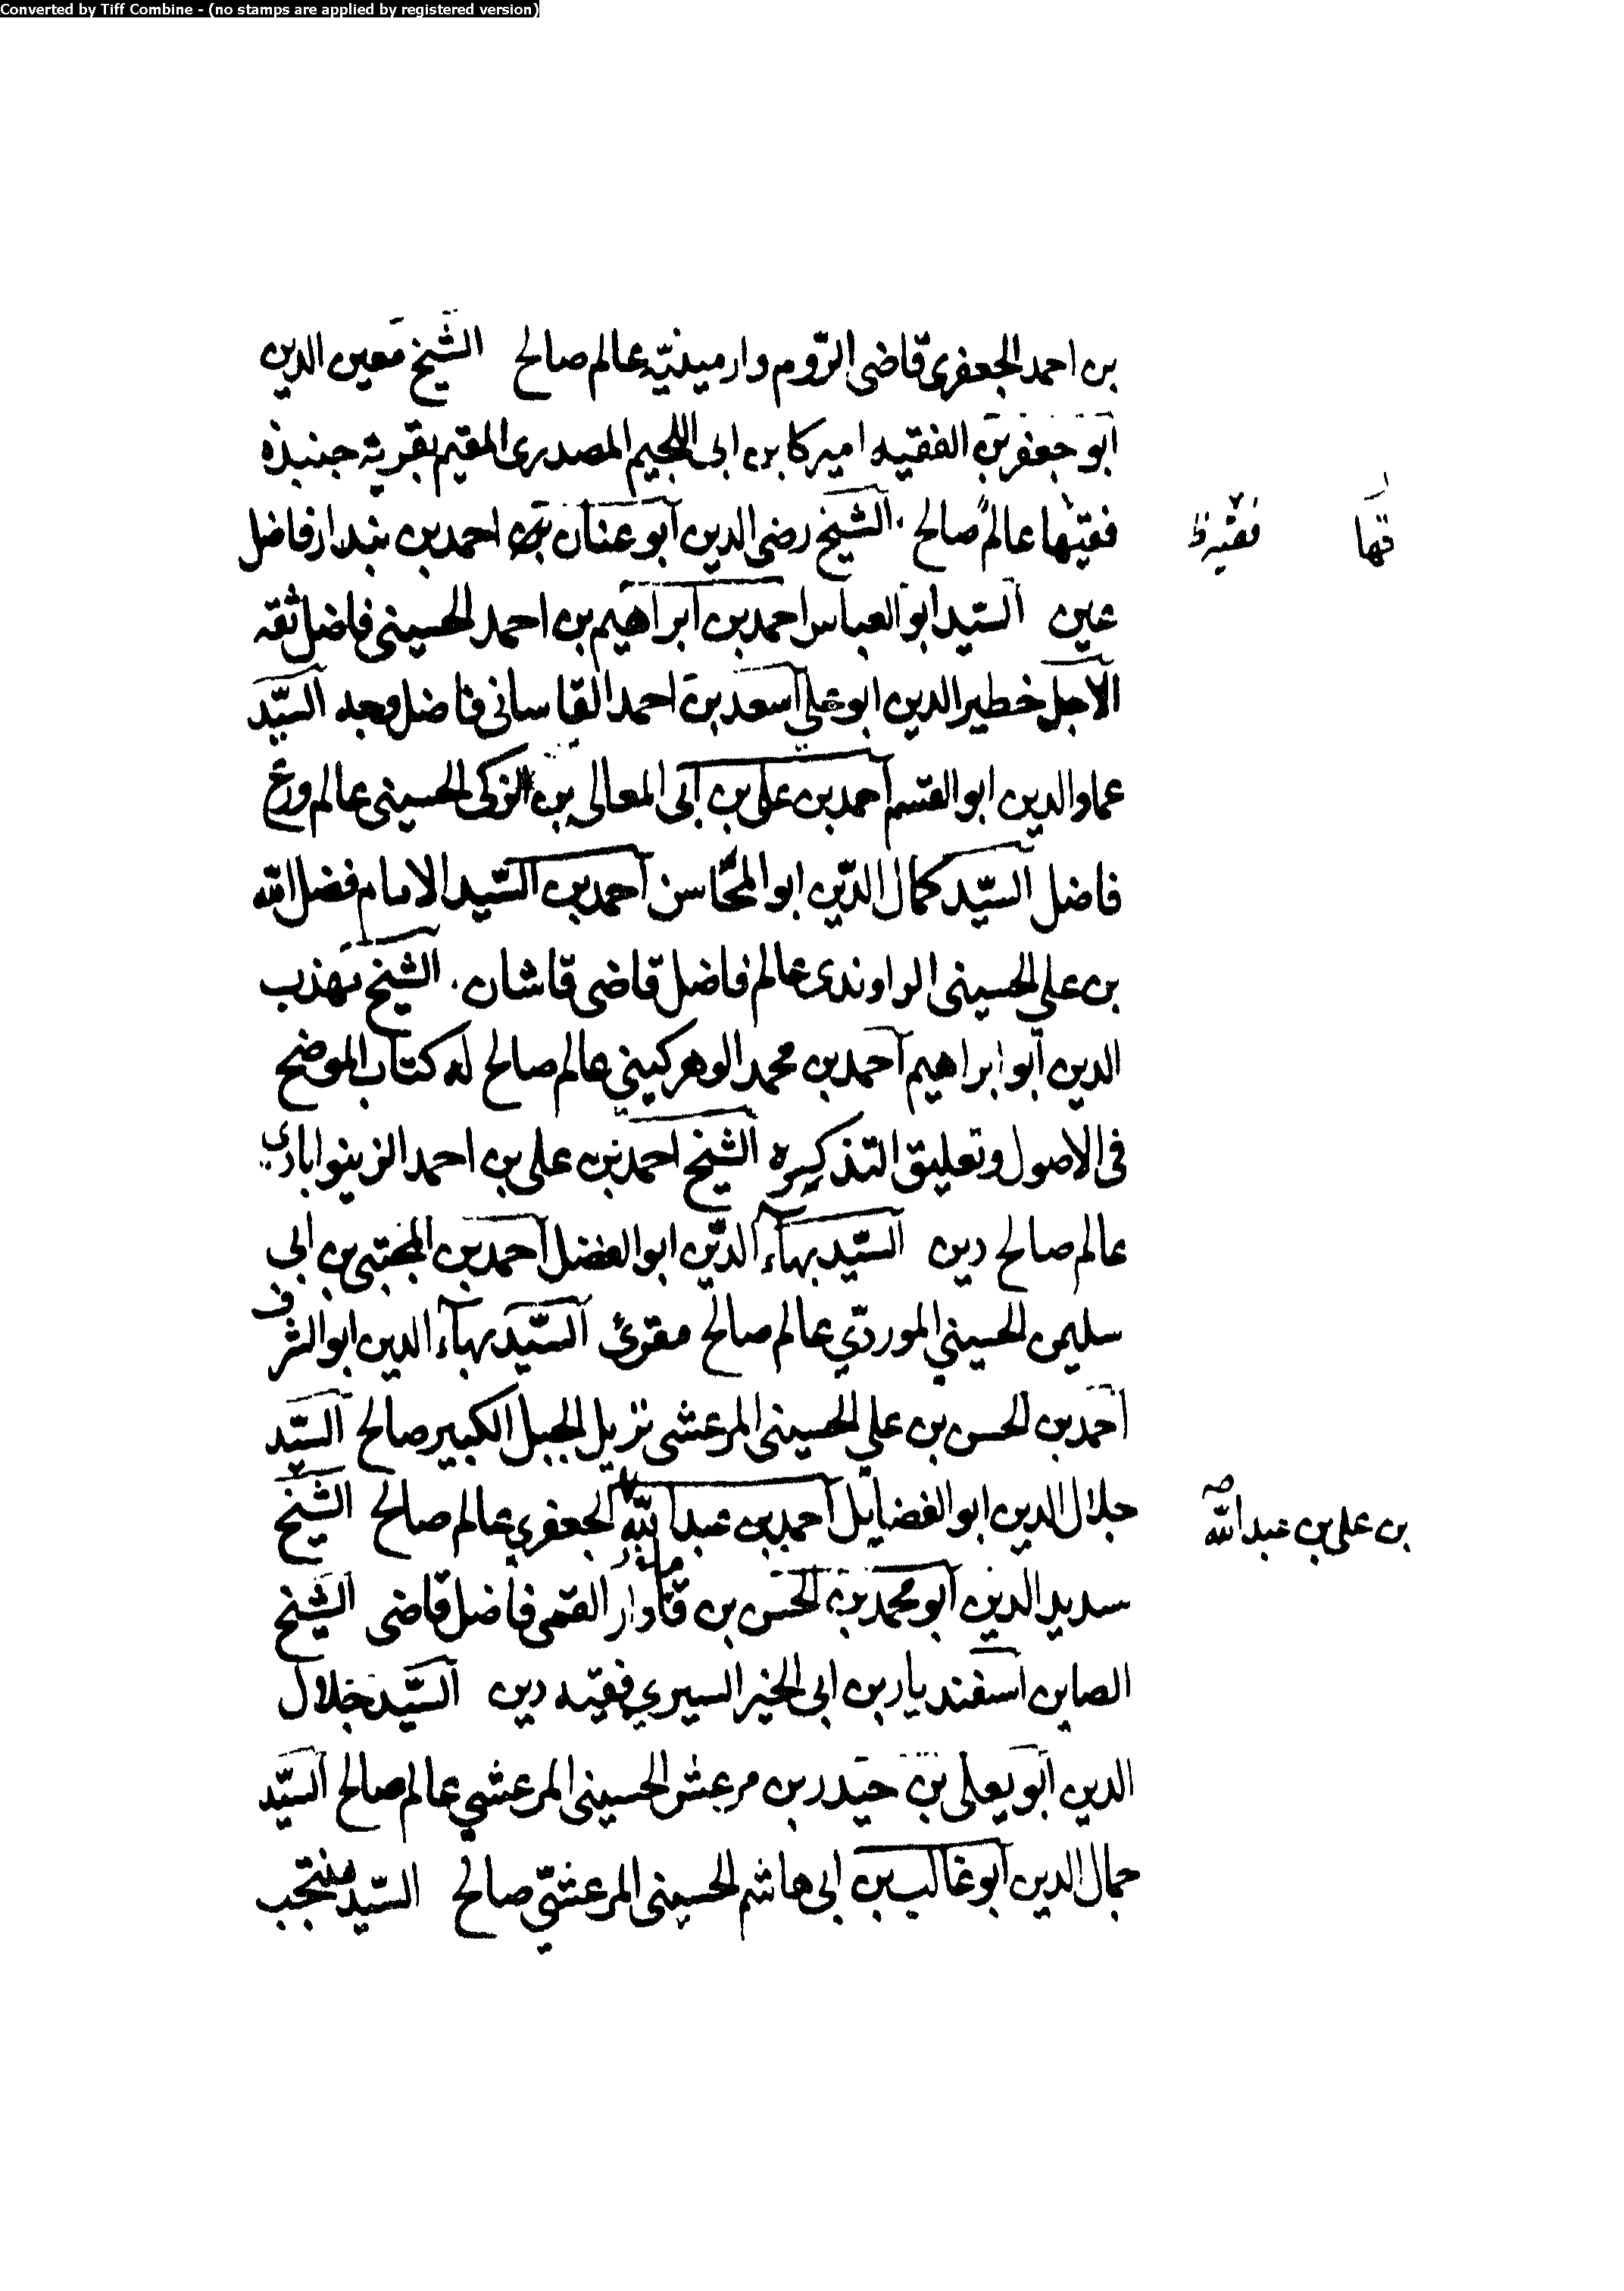 Converted by Tiff Combine - (no stamps are applied by registered version)
بن احمد الجعفرى قاضى الروم وارمينيّة عالم صالح الشيخ معين الدين
ابو جعفر بن الفقيه اميركا بن ابى اللجيم المصدرى المقيم بقرية جنبذه
فقيها عالم صالح الشيخ رضى الدين ابو عنان بن احمد بن بندار فاضل
قها
عين السيد ابو العباس احمد بن ابراهيم بن احمد الحسينى فاضل ثقه
الاجل خطير الدين ابو على اسعد بن احمد القاسانى فاضل وجه السيّد
عماد الدين ابو القسم احمد بن على بن ابى المعالى بن الزكى الحسينى عالم ورع
فاضل السيّد كمال الدّين ابو المحاسن احمد بن السّيد الامام فضل الله
بن على الحسينى الراوندى عالم فاضل قاضى قاشان الشيخ مهذب
الدين ابو ابراهيم احمد بن محمد الوهركينى عالم صالح له كتاب الموضح
فى الاصول وتعليق التذكره الشيخ احمد بن على بن احمد الزينوابادى
عالم صالح دين السّيد بهاء الدّين ابو الفضل احمد بن المجتبى بن ابى
سليمن الحسينى الموردّي عالم صالح مقرئ السّيد بهاء الدين ابو الشرف
احمد بن الحسن بن على الحسينى المرعشى نزيل الجبل الكبير صالح السّيد
جلال الدين ابو الفضايل احمد بن عبد الله الجعفري عالم صالح الشيخ
بن على بن عبد الله صح
سديد الدين ابو محمد بن الحسن بن القمى فاضل قاضى الشيخ
الصاين اسفنديار بن ابى الخير السيري فقيه دين السيّد جلال
الدين ابو يعلى بن حيدر بن مرعش الحسينى المرعشي عالم صالح السيّد
جمال الدين ابو غالب بن ابى هاشم الحسينى المرعشّي صالح السيّد منتجب